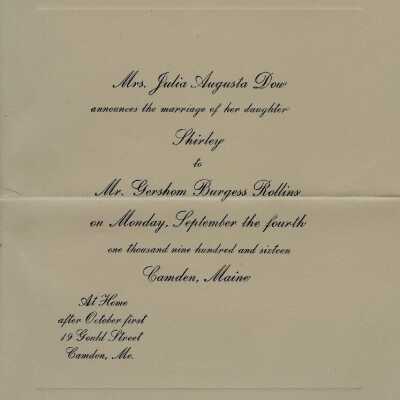 Mrs. Julia Augusta Dow
announces the marriage of her daughter
Shirley
to
Mr. Gershom Burgess Rollins
on Monday, September the fourth
one thousand nine hundred and sixteen
Camden, Maine
At Home
after October first
19 Gould Street
Camden, Me.